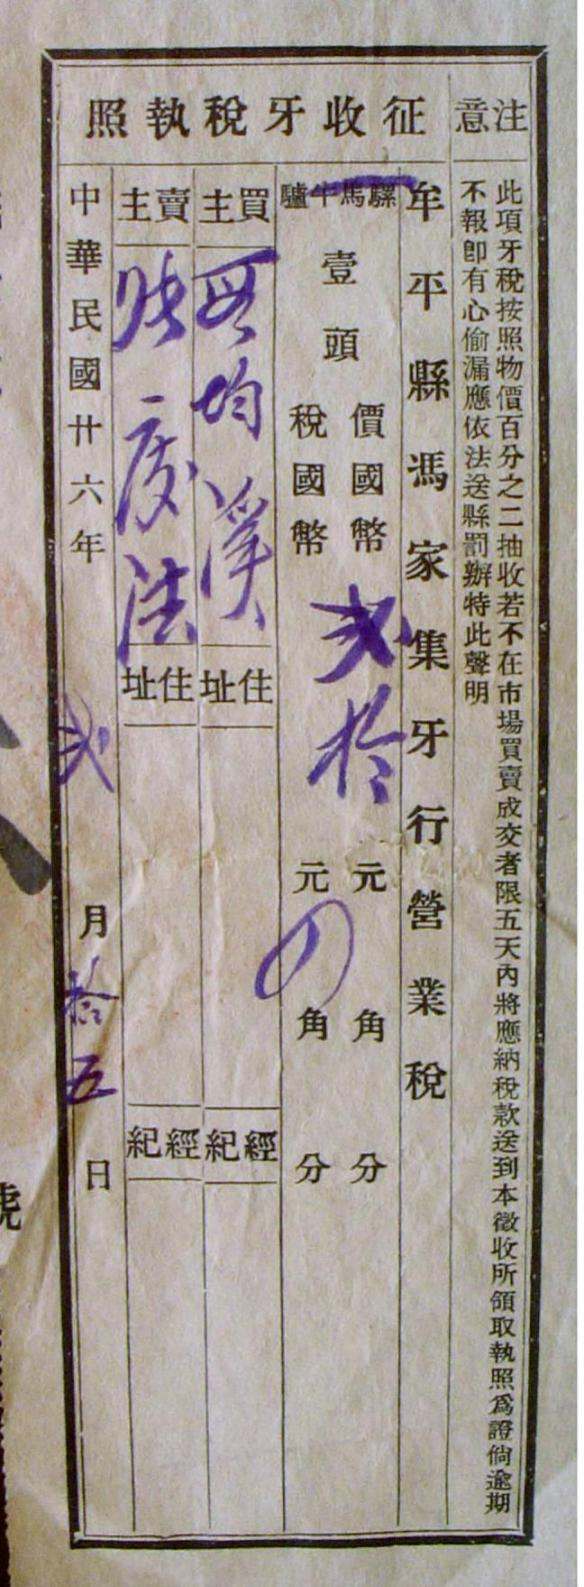 注意
此項牙稅按照物價百分之二抽收若不在市場買賣成交者限五天內將應納稅款送到本徵收所領取執照為證倘逾期
不報卽有心偷漏應依法送縣罰辦特此聲明
征收牙稅執照
牟平縣馮家集牙行營業稅
騾馬牛驢
壹頭
價國幣 弍拾 元 角 分
稅國幣 元 角 分
買主 均溪 住址 經紀
賣主 慶法 住址 經紀
中華民國廿六年 弍 月 拾五 日
號